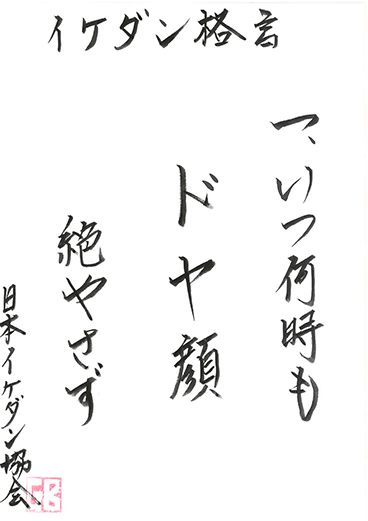 イケダン格言
一、いつ何時も
ドヤ顔
絶やさず
日本イケダン協会